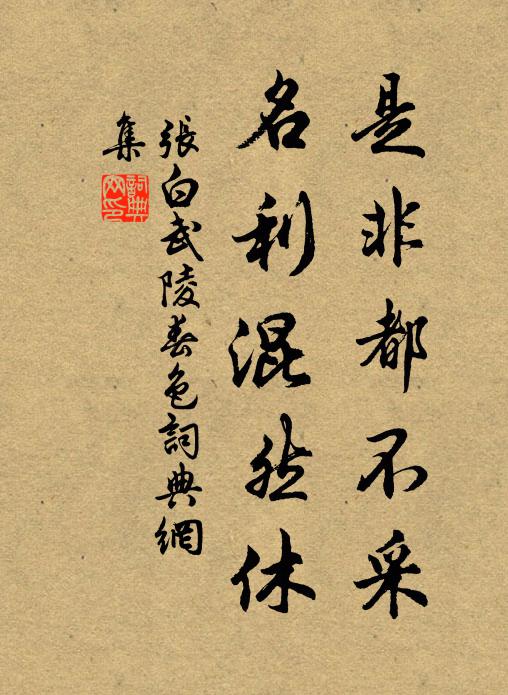 是非都不采
名利混然休
張白武陵春色詞典網
集
詞典
网印